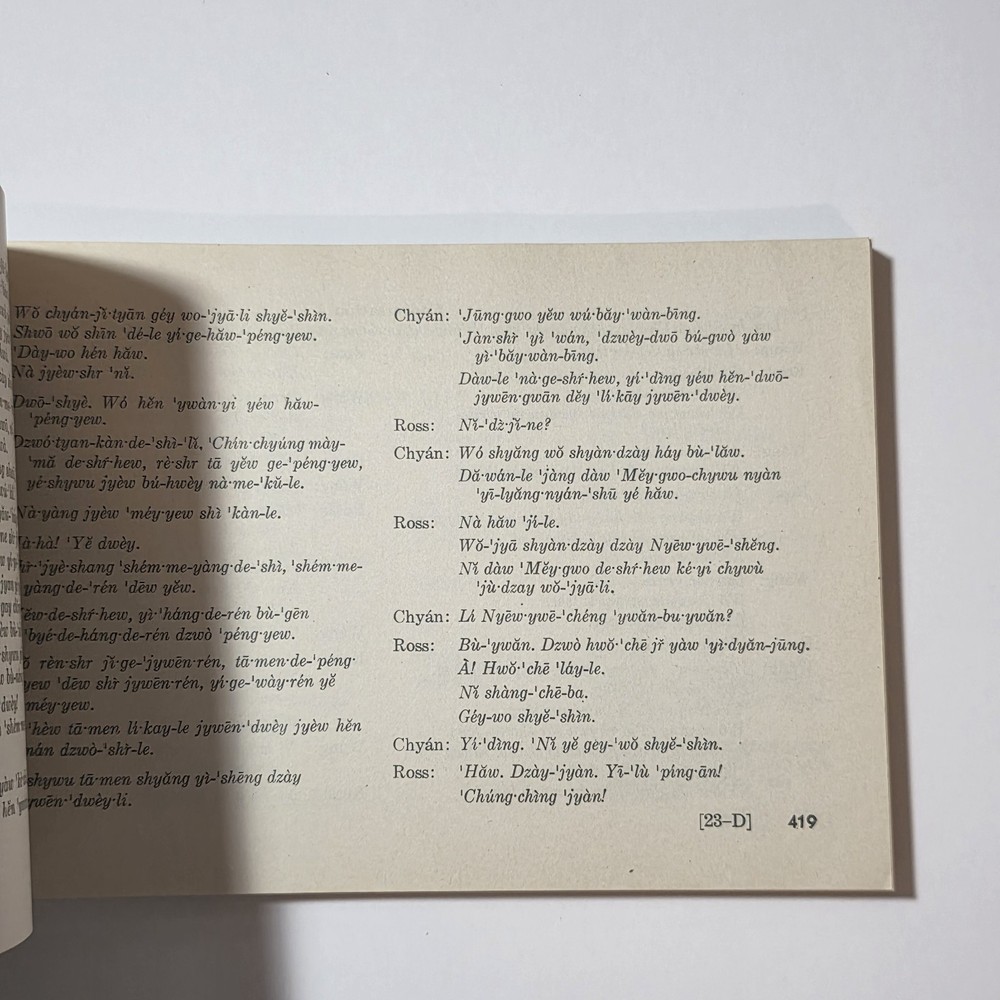 Wǒ chyán-jǐ·tyān géy wo-'jyā·li shyě-'shìn.
Shwō wǒ shīn 'dé-le yí·ge-hǎw-'péng·yew.
'Dày-wo hén hǎw.
Nà jyèw·shr 'nǐ.
Dwō-'shyè. Wó hěn 'ywàn·yi yéw hǎw-
'péng·yew.
Dzwó·tyan-kàn-de-'shì-'lǐ, 'Chín·chyúng mày-
'mǎ de·shŕ·hew, rè·shr tā yěw ge-'péng·yew,
yé·shywu jyèw bú-hwèy nà·me-'kǔ-le.
Nà·yàng jyèw 'méy·yew shì 'kàn-le.
'Yě dwèy.
'jyè·shang 'shém·me-yàng·de-'shì, 'shém·me-
yàng·de-'rén 'dēw yěw.
de·shŕ·hew, yì·'háng·de-rén bù-'gēn
'byé·de-háng·de-rén dzwò 'péng·yew.
rèn·shr jǐ·ge-'jywēn·rén, tā·men·de-'péng·
yew 'dēw shr̀ jywēn·rén, yí·ge-'wày·rén yě
méy·yew.
tā·men lí·kay-le jywēn·'dwèy jyèw hěn
nán dzwò-'shr̀-le.
tā·men shyǎng yì-'shēng dzày
jywēn·'dwèy·li.
Chyán: 'Jūng·gwo yěw wú·bǎy·'wàn-bīng.
'Jàn·shr̀ 'yì 'wán, 'dzwèy-dwō bú·gwò yàw
yì·'bǎy·wàn-bīng.
Dàw-le 'nà·ge-shŕ·hew, yí·'dìng yéw hěn-'dwō-
jywēn·gwān děy 'lí·kāy jywēn·'dwèy.
Ross: Nǐ-'dz̀·jǐ-ne?
Chyán: Wó shyǎng wǒ shyàn·dzày háy bù-'lǎw.
Dǎ-wán-le 'jàng dàw 'Měy·gwo-chywu nyàn
'yī-lyǎng·nyán-'shū yé hǎw.
Ross: Nà hǎw 'jí-le.
Wǒ-'jyā shyàn·dzày dzày Nyěw·ywē-'shěng.
Nǐ dàw 'Měy·gwo de·shŕ·hew ké·yi chywù
'jù·dzay wǒ-'jyā·li.
Chyán: Lí Nyěw·ywē-'chéng 'ywǎn-bu·ywǎn?
Ross: Bù-'ywǎn. Dzwò hwǒ·'chē jř yàw 'yì·dyǎn-jūng.
À! Hwǒ·'chē 'láy-le.
Nǐ shàng-'chē-ba.
Géy-wo shyě-'shìn.
Chyán: Yí·'dìng. 'Nǐ yě gey-'wǒ shyě-'shìn.
Ross: 'Hǎw. Dzày-'jyàn. Yī-'lù 'píng·ān!
'Chúng·chìng 'jyàn!
[23–D] 419